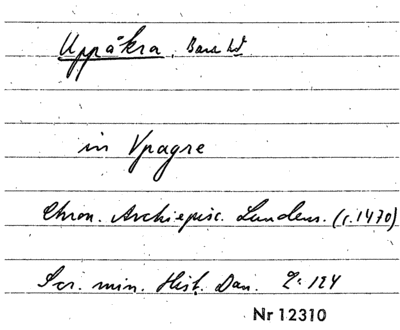 Uppåkra, Bara hd
in Vpagre
Chron. Archiepisc. Lundens. (c. 1470)
Scr. min. Hist. Dan. 2: 124
Nr 12310